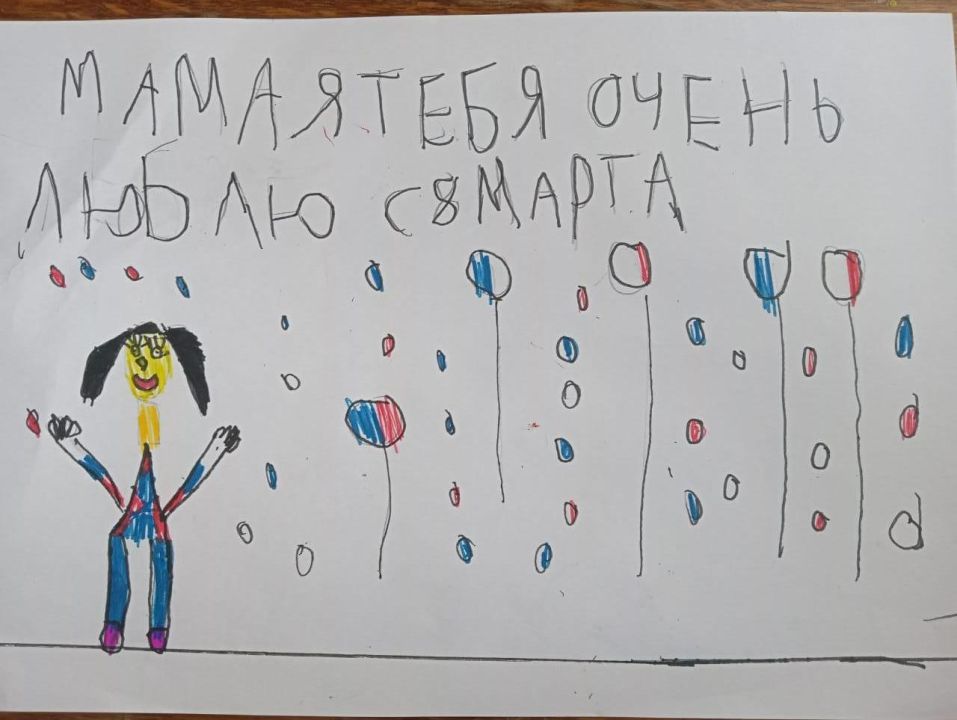 МАМА Я ТЕБЯ ОЧЕНЬ
ЛЮБЛЮ С 8 МАРТА